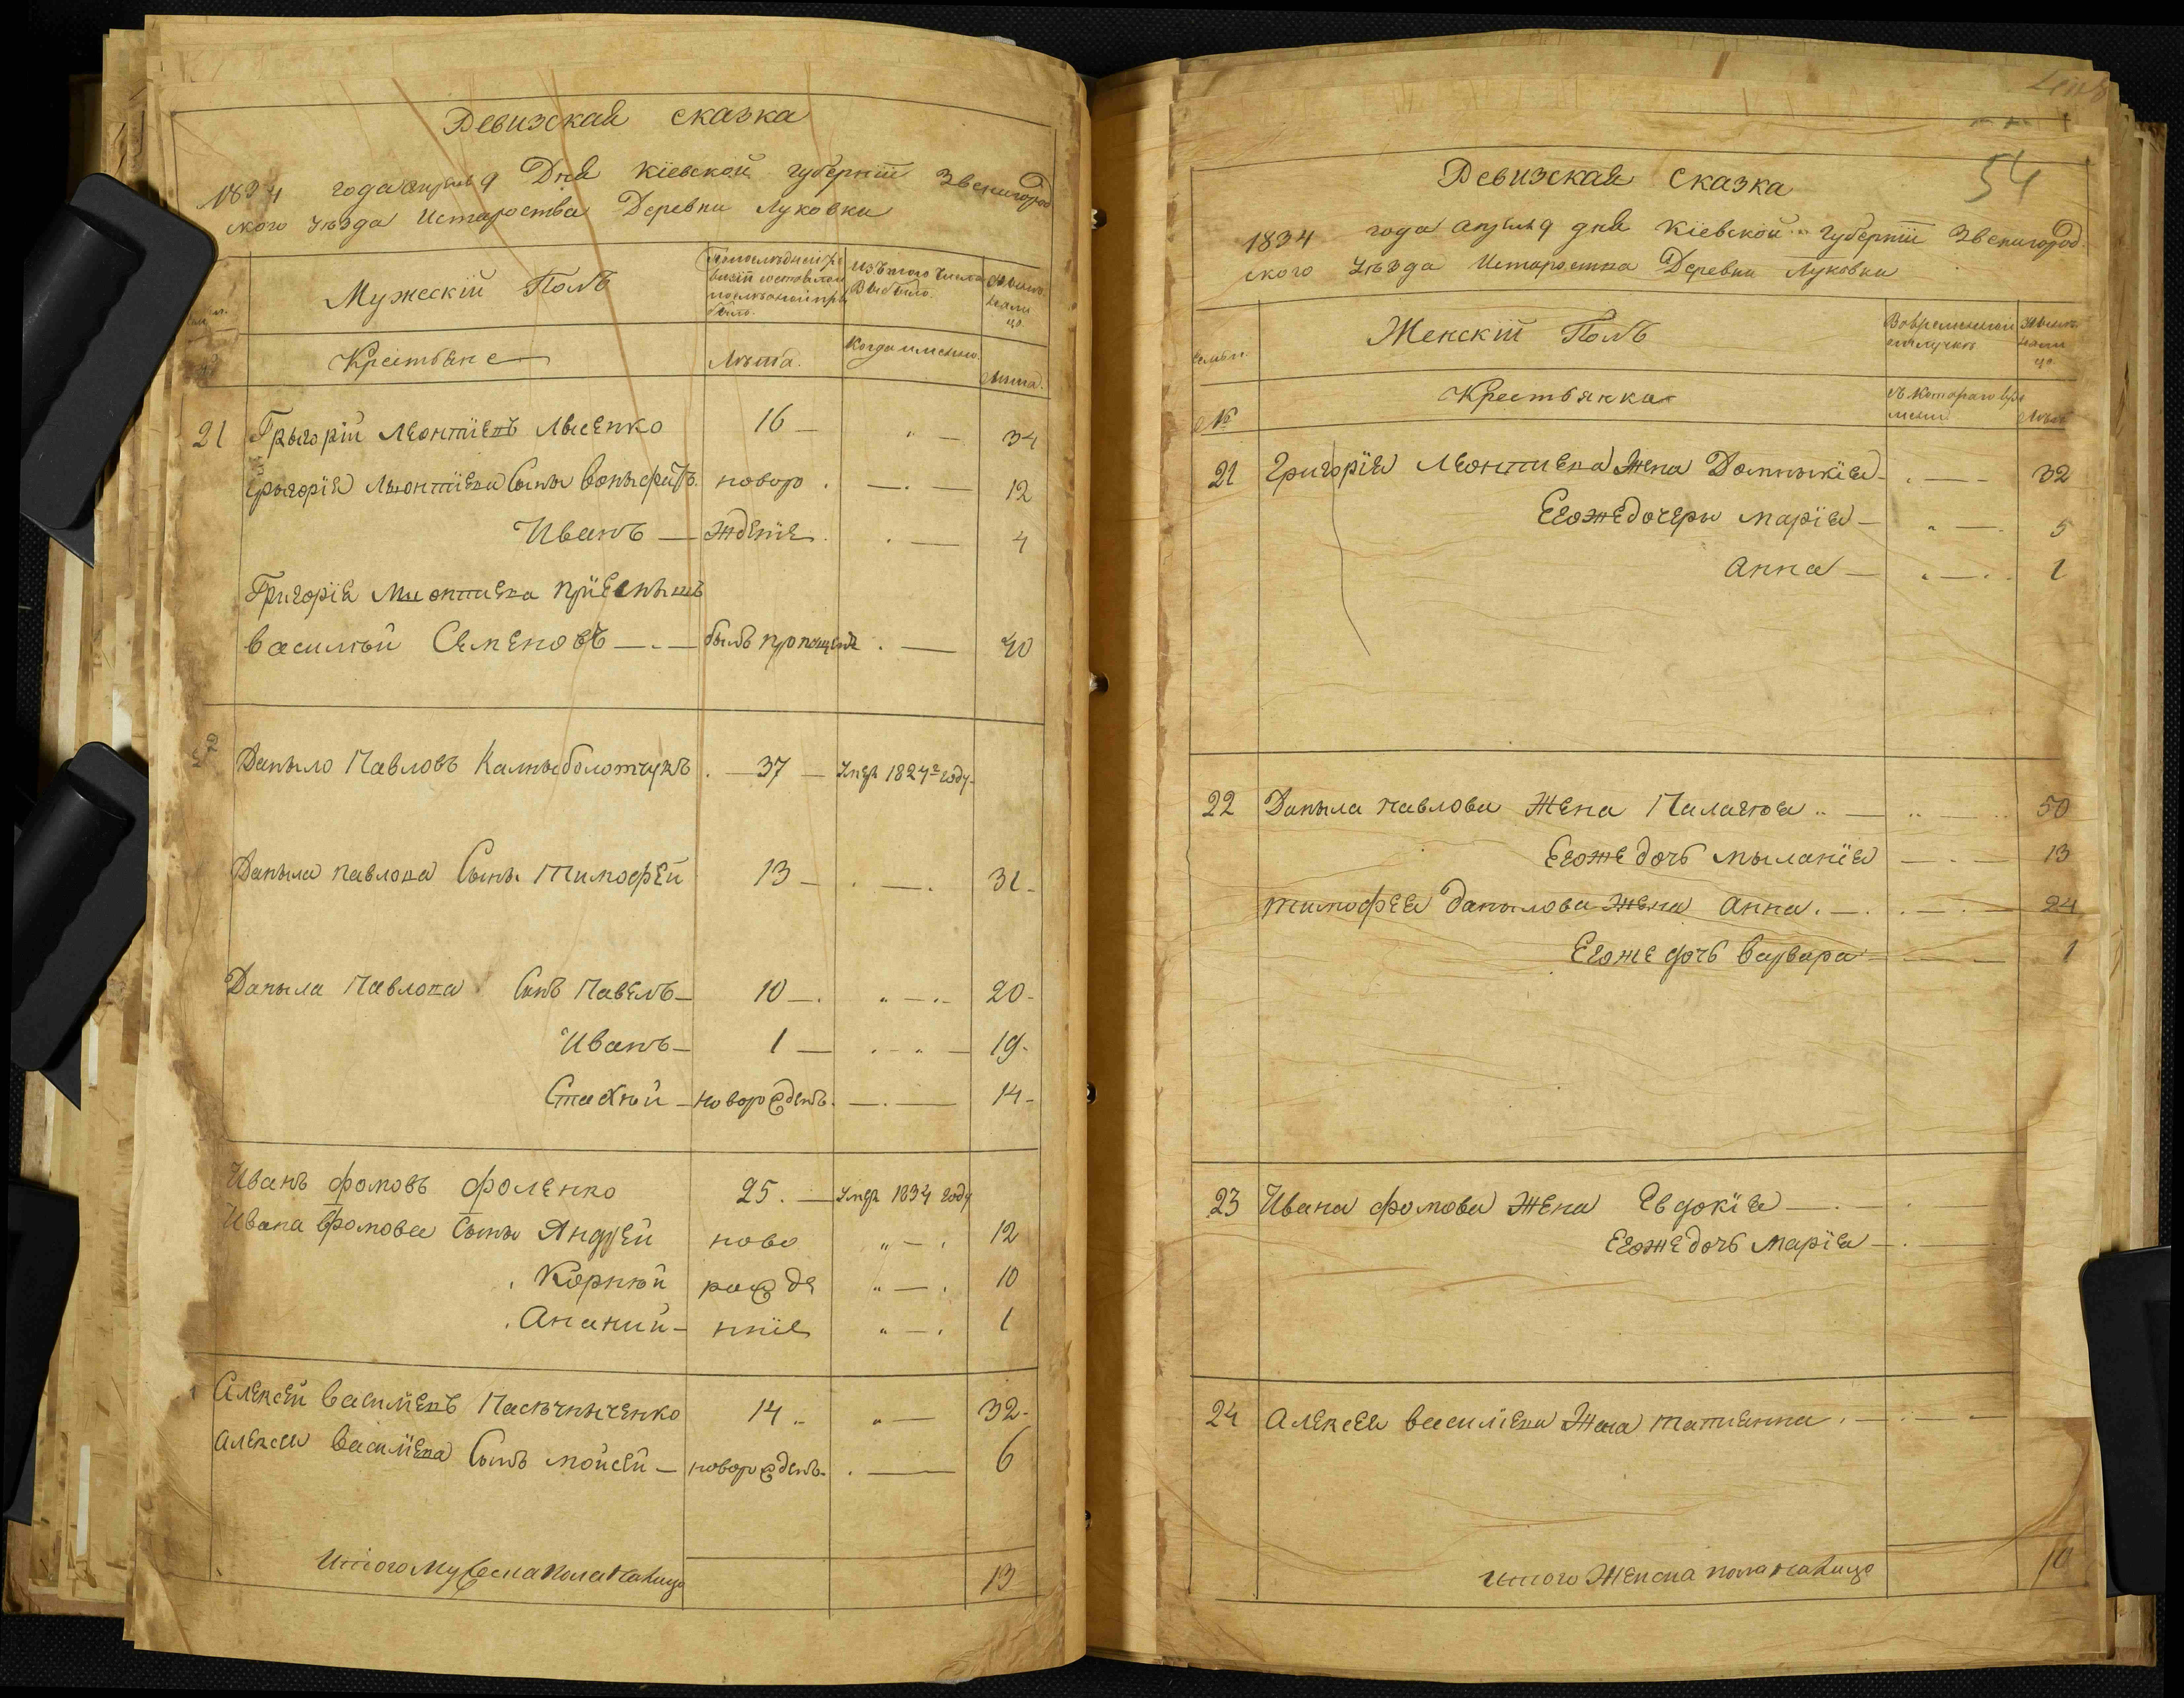 Ревизская сказка
1834 года апреля 9 Дня Кіевской губерніи Звенигород
ского уѣзда Истароства Деревни Луковки
Мужескій Полъ
По последней ре
визіи состояло и
после оной при
было.
Изъ того числа
Выбыло.
Ныне
на ли
цо.
Крестьяне
Лѣта.
Когда именно.
Лѣта.
21 Грыгорій Леонтіевъ Лысенко 16 — „ — 34
Грыгорія Леонтіева Сыны Воныфатъ новоро . — . — 12
Иванъ — жденіе . . — 4
Григорія Леонтиева пріемышъ
Василѣй Семеновъ — . — былъ пропущенъ . — 40
22 Даныло Павловъ Калныболотчукъ . — 37 — Умеръ 1824г году —
Даныла Павлова Сыны Тимофѣй 13 — . — . 31 -
Даныла Павлова Сынъ Павелъ — 10 — . „ — . - 20 -
Иванъ — 1 — . - „ — 19 -
Стахѣй — новорожденъ . — . — 14 -
Иванъ Фомовъ Фоменко 25 . — Умеръ 1834 году
Ивана Фомова Сыны Андрей ново „ — . 12
. Корнѣй рожде „ — . 10
. Ананий — нніе „ — . 1
Алексей Василіевъ Пасѣчныченко 14 „ „ — 32 -
Алексея Василіева Сынъ Мойсей — новорожденъ . . — 6
Итого Мужеска пола на лицо 13
54
Ревизская Сказка
1834 года апреля 9 дня Кіевской губерніи Звенигород
ского уѣзда Истароства Деревни Луковки
семьи.
Женскій Полъ
Во временной
отлучке
Ныне
на ли
цо.
№
Крестьянки
Съ котораго вре
мени
Лѣта
21 Григорія Леонтиева Жена Домныкія — . — - 32
Его же дочеры Марія — „ — . 5
Анна — . — . . 1
22 Даныла Павлова Жена Палагія .. — .. — .. 50
Его же дочь Мыланія — . — 13
Тимофея Данылова жена Анна . — . . — . — 24
Его же дочь Варвара — — — 1
23 Ивана Фомова Жена Евдокія — . — . —
Его же дочь Марія — . —
24 Алексея Василіева Жена Татиенна . — . —
Итого Женска пола на лицо 10